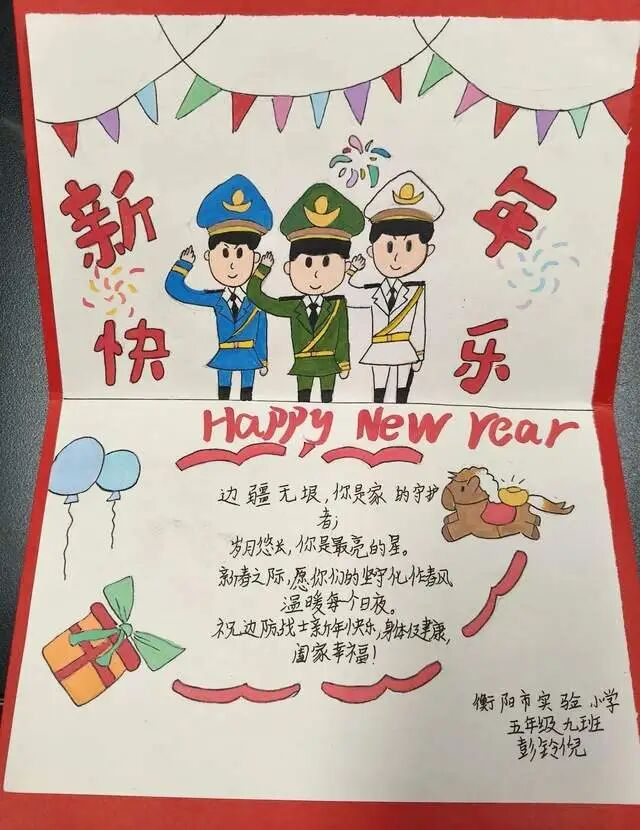 新年
快乐
Happy New Year
边疆无垠,你是家的守护
者;
岁月悠长,你是最亮的星。
新春之际,愿你们的坚守化作春风,
温暖每个日夜。
祝边防战士新年快乐,身体健康,
阖家幸福!
衡阳市实验小学
五年级九班
彭铃倪